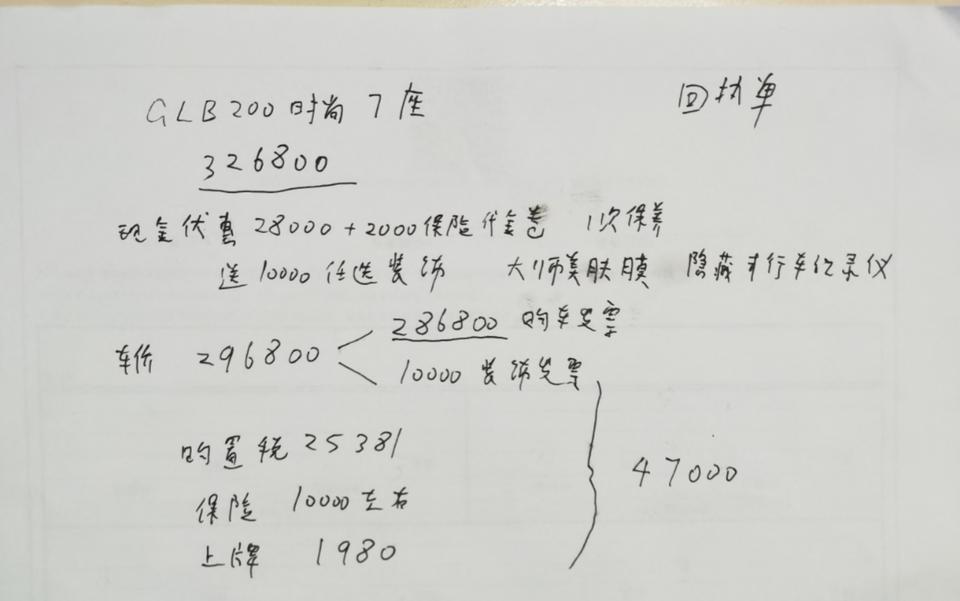 GLB 200 时尚 7座
回执单
326800
现金优惠 28000 + 2000 保险代金卷 1次保养
送 10000 任选装饰 大师美肤膜 隐藏式行车记录仪
车价 296800
286800 购车发票
10000 装饰发票
购置税 25381
保险 10000 左右
上牌 1980
47000